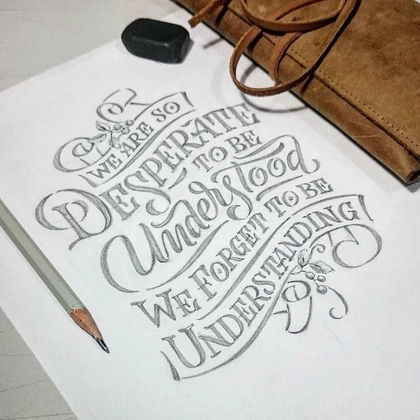 WE ARE SO
DESPERATE
TO BE
Understood
WE FORGET TO BE
UNDERSTANDING